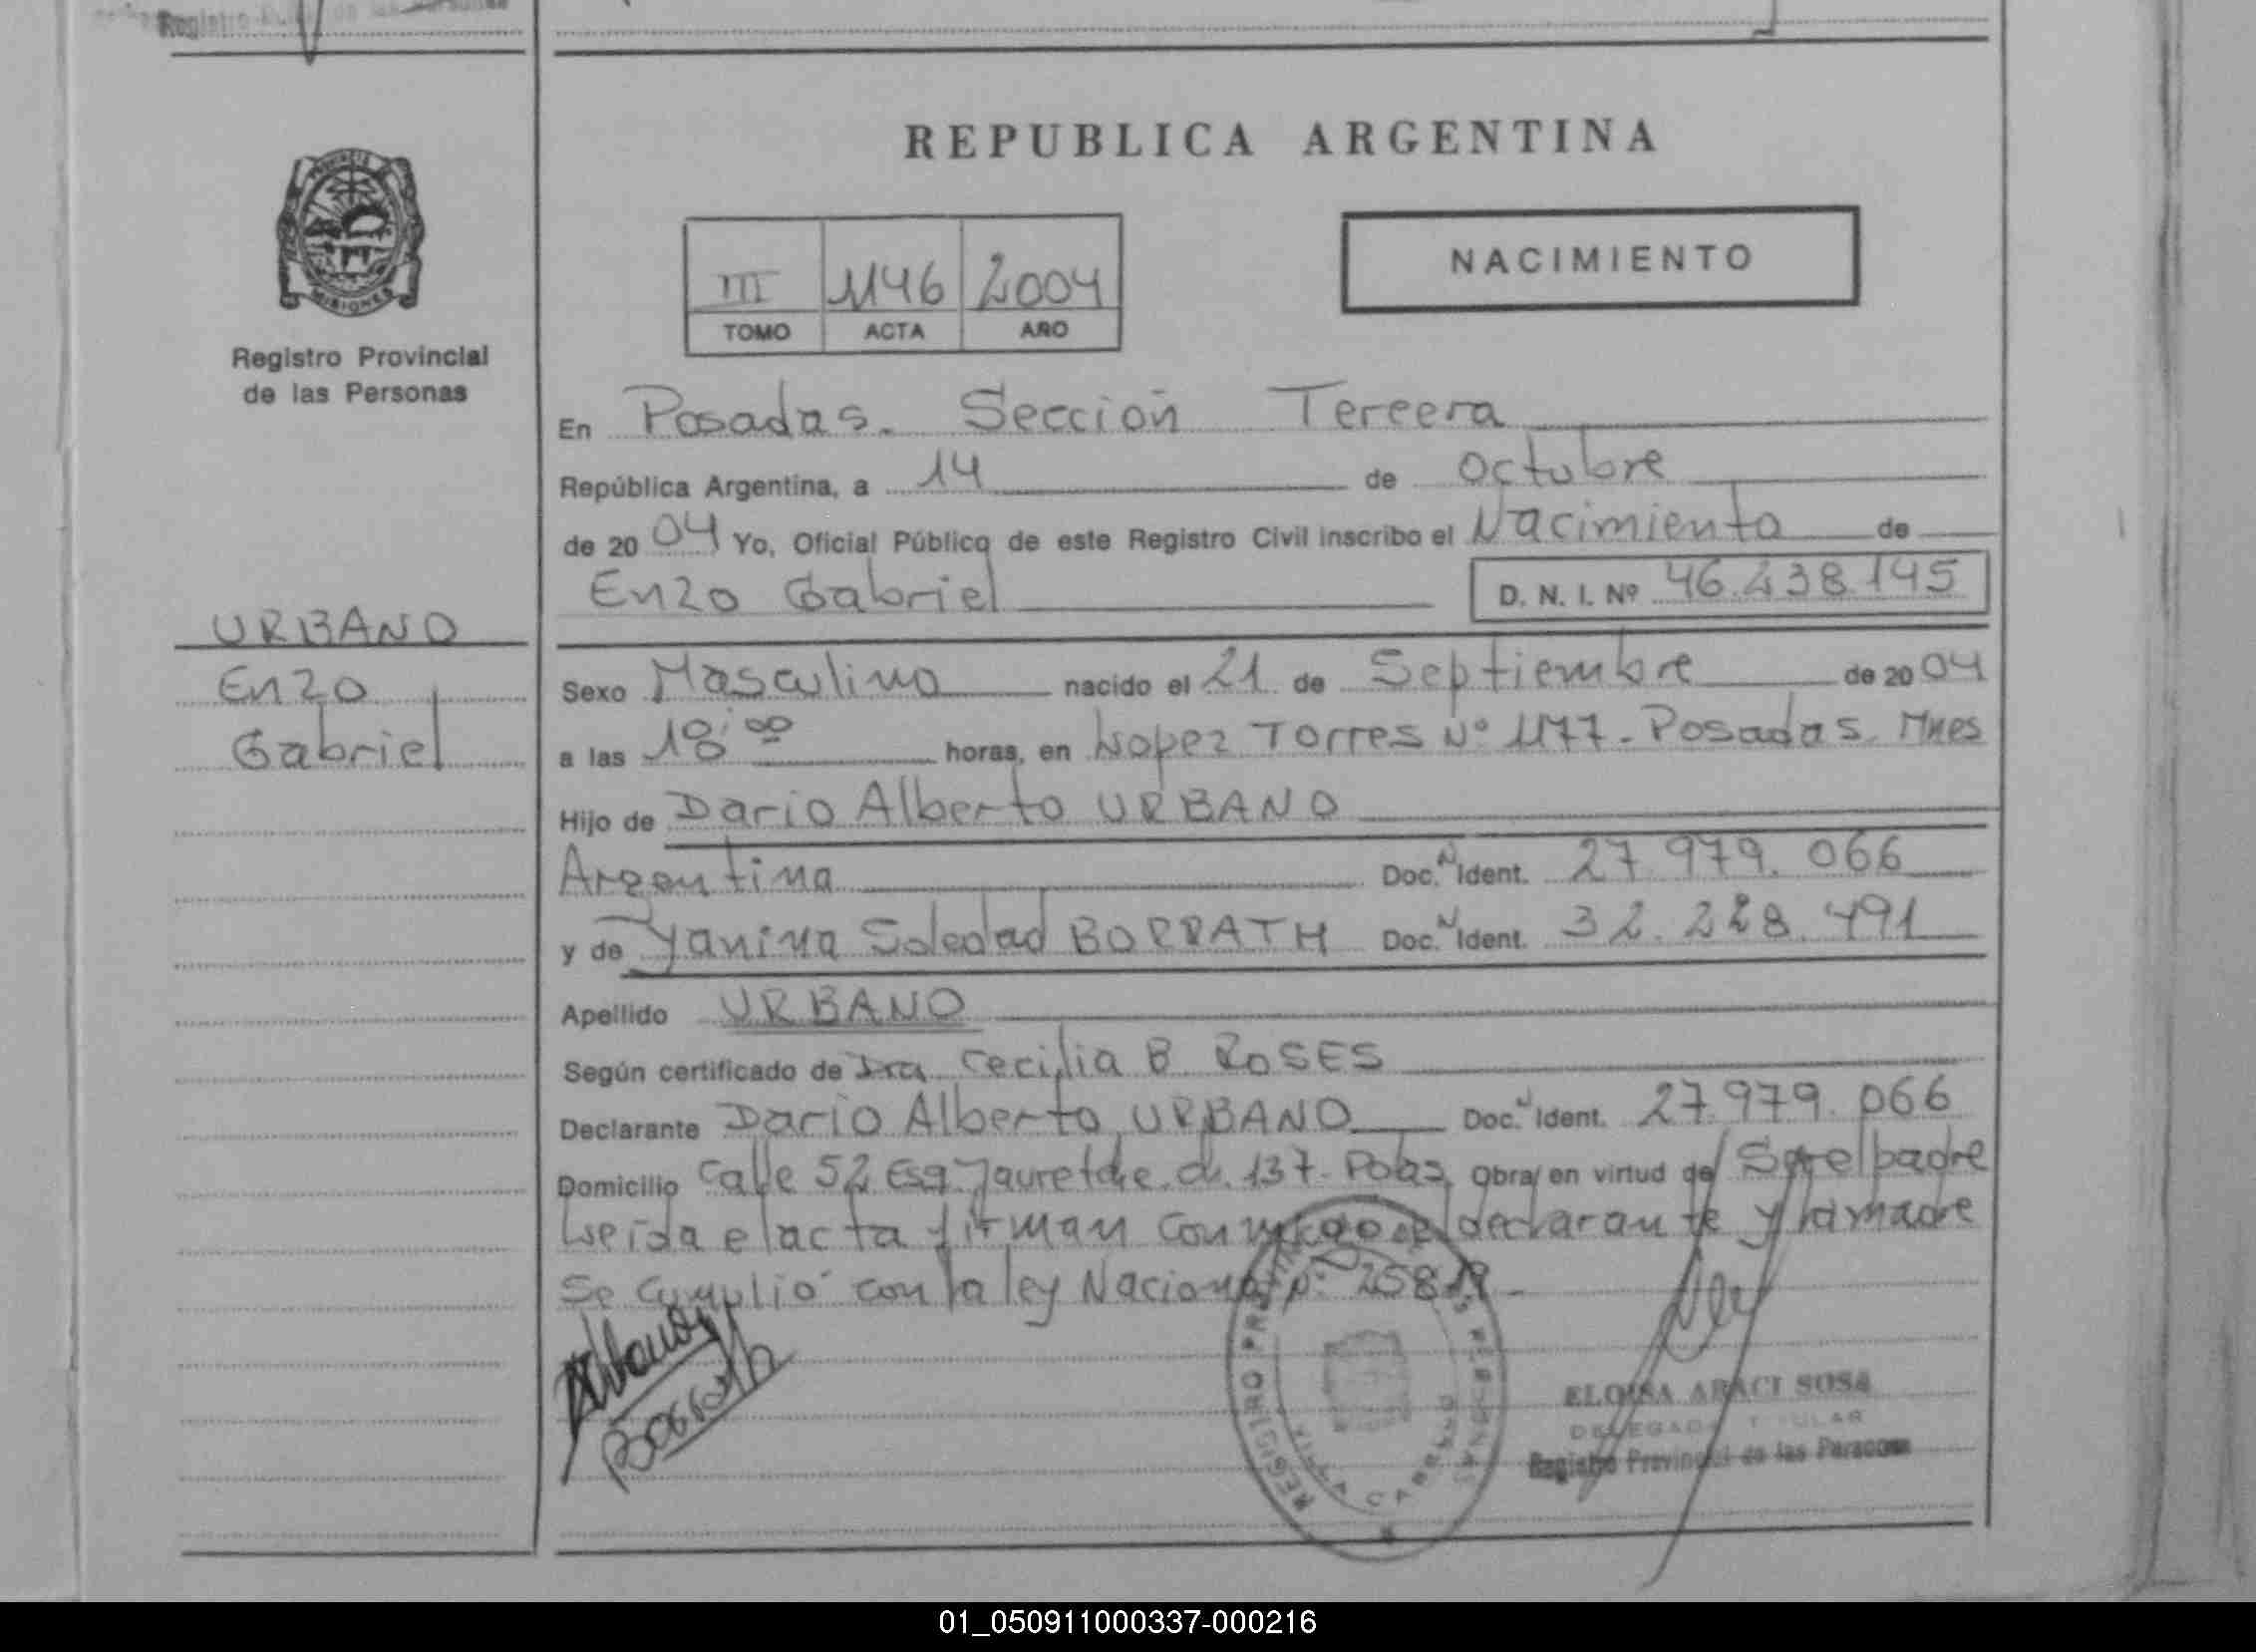 Registro de las Personas
REPUBLICA ARGENTINA
NACIMIENTO
III 1146 2004
TOMO ACTA AÑO
MISIONES
Registro Provincial
de las Personas
En Posadas. Sección Tercera
República Argentina, a 14 de octubre
de 2004 Yo, Oficial Público de este Registro Civil inscribo el Nacimiento de
Enzo Gabriel D. N. I. Nº 46.238.145
URBANO
Enzo
Gabriel
Sexo Masculino nacido el 21 de Septiembre de 2004
a las 18:00 horas, en Lopez Torres Nº 1177. Posadas. Mnes
Hijo de Dario Alberto URBANO
Argentina Doc. N Ident. 27.979.066
y de Yanina Soledad BORRATH Doc. N Ident. 32.228.491
Apellido URBANO
Según certificado de Dra Cecilia B. ROSES
Declarante Dario Alberto URBANO Doc. N Ident. 27.979.066
Domicilio Calle 52 Esq. Jauretche. ch. 137. Pdas Obra en virtud de Ser el padre
Leida el acta firman conmigo el declarante y la madre
Se cumplió con la ley Nacional Nº 25819.
REGISTRO
ELOISA ARACI SOSA
DELEGADA TITULAR
Registro Provincial de las Personas
01_050911000337-000216